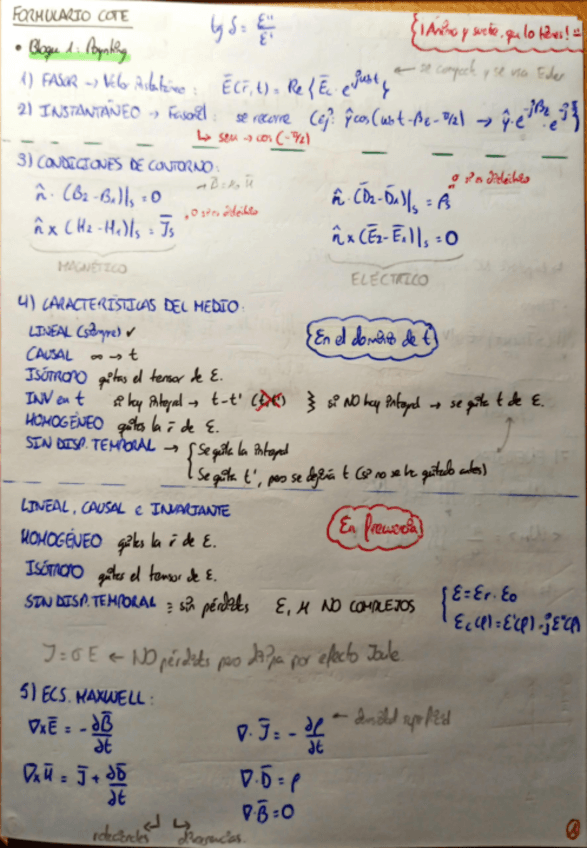 FORMULARIO COTE
tg δ = ε''/ε'
¡Ánimo y suerte, que lo tienes! =
• Bloque 1: Poynting
1) FASOR → Valor Instantáneo: Ē(r̄,t) = Re{Ēc · e^jωt}
← se comporta y se usa Euler
2) INSTANTÁNEO → Fasorial: se recorre (ej: ŷcos(ωt-βz-π/2) → ŷ·e^-jβz·e^-j
↳ sen → cos (-π/2)
3) CONDICIONES DE CONTORNO:
n̂ · (B2-B1)|s = 0
n̂ x (H2-H1)|s = J̄s
MAGNÉTICO
n̂ · (D̄2-D̄1)|s = ρs
n̂ x (Ē2-Ē1)|s = 0
ELÉCTRICO
4) CARACTERÍSTICAS DEL MEDIO:
En el dominio de t
LINEAL (siempre) ✓
CAUSAL ∞ → t
ISÓTROPO quitas el tensor de ε.
INV en t si hay integral → t-t' } si NO hay integral → se quita t de ε.
HOMOGÉNEO quitas la r̄ de ε.
SIN DISP. TEMPORAL → { Se quita la integral
Se quita t', pero se dejaría t (si no se ha quitado antes)
LINEAL, CAUSAL e INVARIANTE
En frecuencia
HOMOGÉNEO quitas la r̄ de ε.
ISÓTROPO quitas el tensor de ε.
SIN DISP. TEMPORAL ≡ sin pérdidas ε, μ NO COMPLEJOS
{ ε = εr · ε0
εc(f) = ε'(f) - jε''(f)
J = σ E ← NO pérdidas pero disipa por efecto Joule
5) ECS. MAXWELL:
∇xĒ = - ∂B̄/∂t
∇ · J̄ = - ∂ρ/∂t ← densidad superficial
∇xH̄ = J̄ + ∂D̄/∂t
∇ · D̄ = ρ
∇ · B̄ = 0
rotacionales ↲ ↳ divergencias.
1